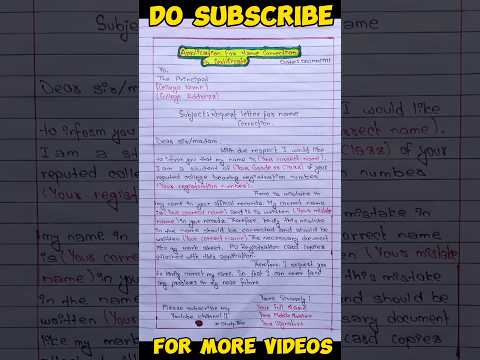 DO SUBSCRIBE
Application For Name Correction
To,
The Principal
(College Name)
(College Address)
Subject: Request letter for name
correction.
Dear sir/madam,
With due respect I would like
to inform you that my name is (Your correct name).
I am a student of (Your Grade or Class) of your
reputed college bearing registration number
(Your registration number).
There is mistake in
my name in your official records. My correct
name is (Your correct name) and it is written (Your mistake
name) in your records. Therefore kindly this mistake
in the name should be corrected and should be
written (Your correct name). The necessary document
like my mark sheet, registration card copies
attached with this
Therefore, I request you
to kindly correct my name. So that I can never face
any problems in my near future.
Please subscribe my
Youtube channel!!
Yours Sincerely!
Your Full Name
Your Mobile Number
Your Signature
FOR MORE VIDEOS